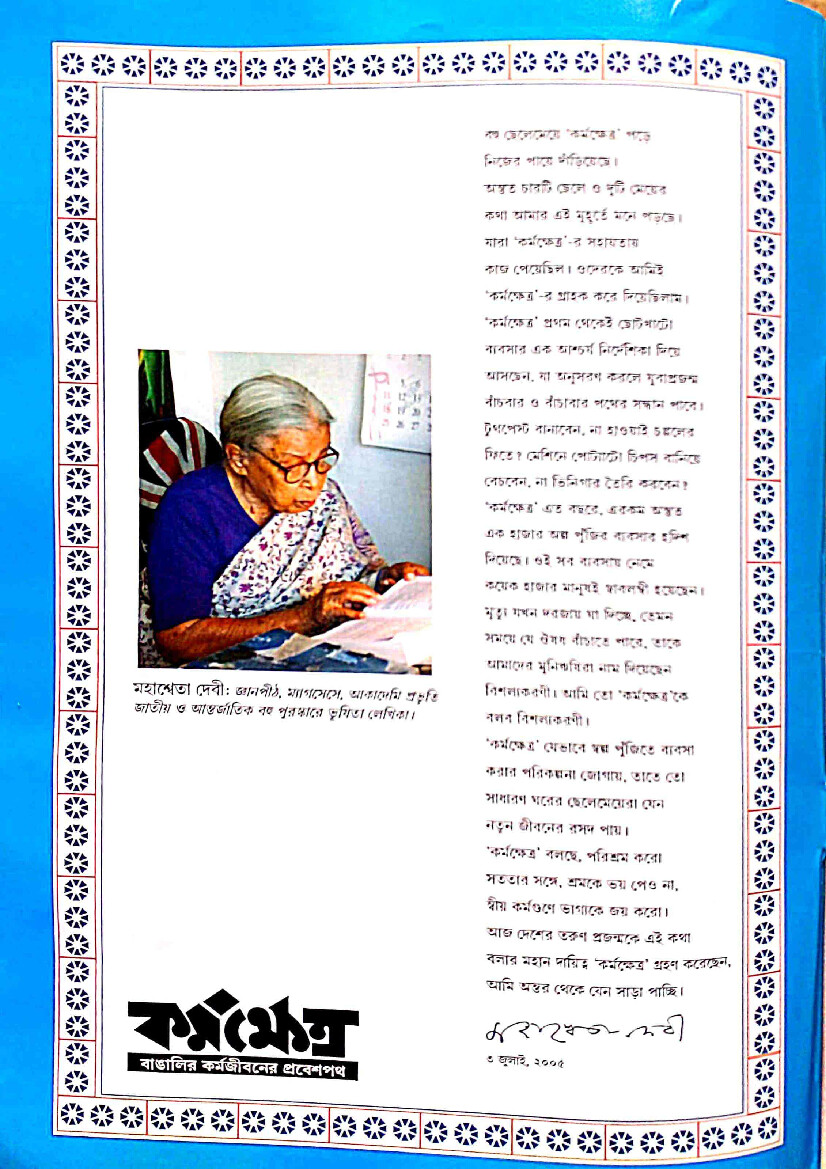 বহু ছেলেমেয়ে 'কর্মক্ষেত্র' পড়ে
নিজের পায়ে দাঁড়িয়েছে।
অন্তত চারটি ছেলে ও দুটি মেয়ের
কথা আমার এই মুহূর্তে মনে পড়ছে।
যারা 'কর্মক্ষেত্র'-র সহায়তায়
কাজ পেয়েছিল। ওদেরকে আমিই
'কর্মক্ষেত্র'-র গ্রাহক করে দিয়েছিলাম।
'কর্মক্ষেত্র' প্রথম থেকেই ছোটখাটো
ব্যবসার এক আশ্চর্য নির্দেশিকা দিয়ে
আসছেন, যা অনুসরণ করলে যুবাপ্রজন্ম
বাঁচবার ও বাঁচাবার পথের সন্ধান পাবে।
টুথপেস্ট বানাবেন, না হাওয়াই চপ্পলের
ফিতে? মেশিনে পোট্যাটো চিপস বানিয়ে
বেচবেন, না ভিনিগার তৈরি করবেন?
'কর্মক্ষেত্র' এত বছরে, এরকম অন্তত
এক হাজার অল্প পুঁজির ব্যবসার হদিশ
দিয়েছে। ওই সব ব্যবসায় নেমে
কয়েক হাজার মানুষই স্বাবলম্বী হয়েছেন।
মৃত্যু যখন দরজায় ঘা দিচ্ছে, তেমন
সময়ে যে ঔষধ বাঁচাতে পারে, তাকে
আমাদের মুনিঋষিরা নাম দিয়েছেন
বিশল্যকরণী। আমি তো 'কর্মক্ষেত্র'কে
বলব বিশল্যকরণী।
'কর্মক্ষেত্র' যেভাবে স্বল্প পুঁজিতে ব্যবসা
করার পরিকল্পনা জোগায়, তাতে তো
সাধারণ ঘরের ছেলেমেয়েরা যেন
নতুন জীবনের রসদ পায়।
'কর্মক্ষেত্র' বলছে, পরিশ্রম করো
সততার সঙ্গে, শ্রমকে ভয় পেও না,
স্বীয় কর্মগুণে ভাগ্যকে জয় করো।
আজ দেশের তরুণ প্রজন্মকে এই কথা
বলার মহান দায়িত্ব 'কর্মক্ষেত্র' গ্রহণ করেছেন,
আমি অন্তর থেকে যেন সাড়া পাচ্ছি।
মহাশ্বেতা দেবী
৩ জুলাই, ২০০৫
মহাশ্বেতা দেবী: জ্ঞানপীঠ, ম্যাগসেসে, আকাদেমি প্রভৃতি
জাতীয় ও আন্তর্জাতিক বহু পুরস্কারে ভূষিতা লেখিকা।
কর্মক্ষেত্র
বাঙালির কর্মজীবনের প্রবেশপথ